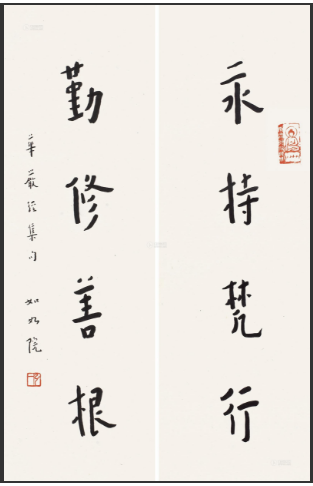 永持梵行
勤修善根
華嚴經集句
如如院